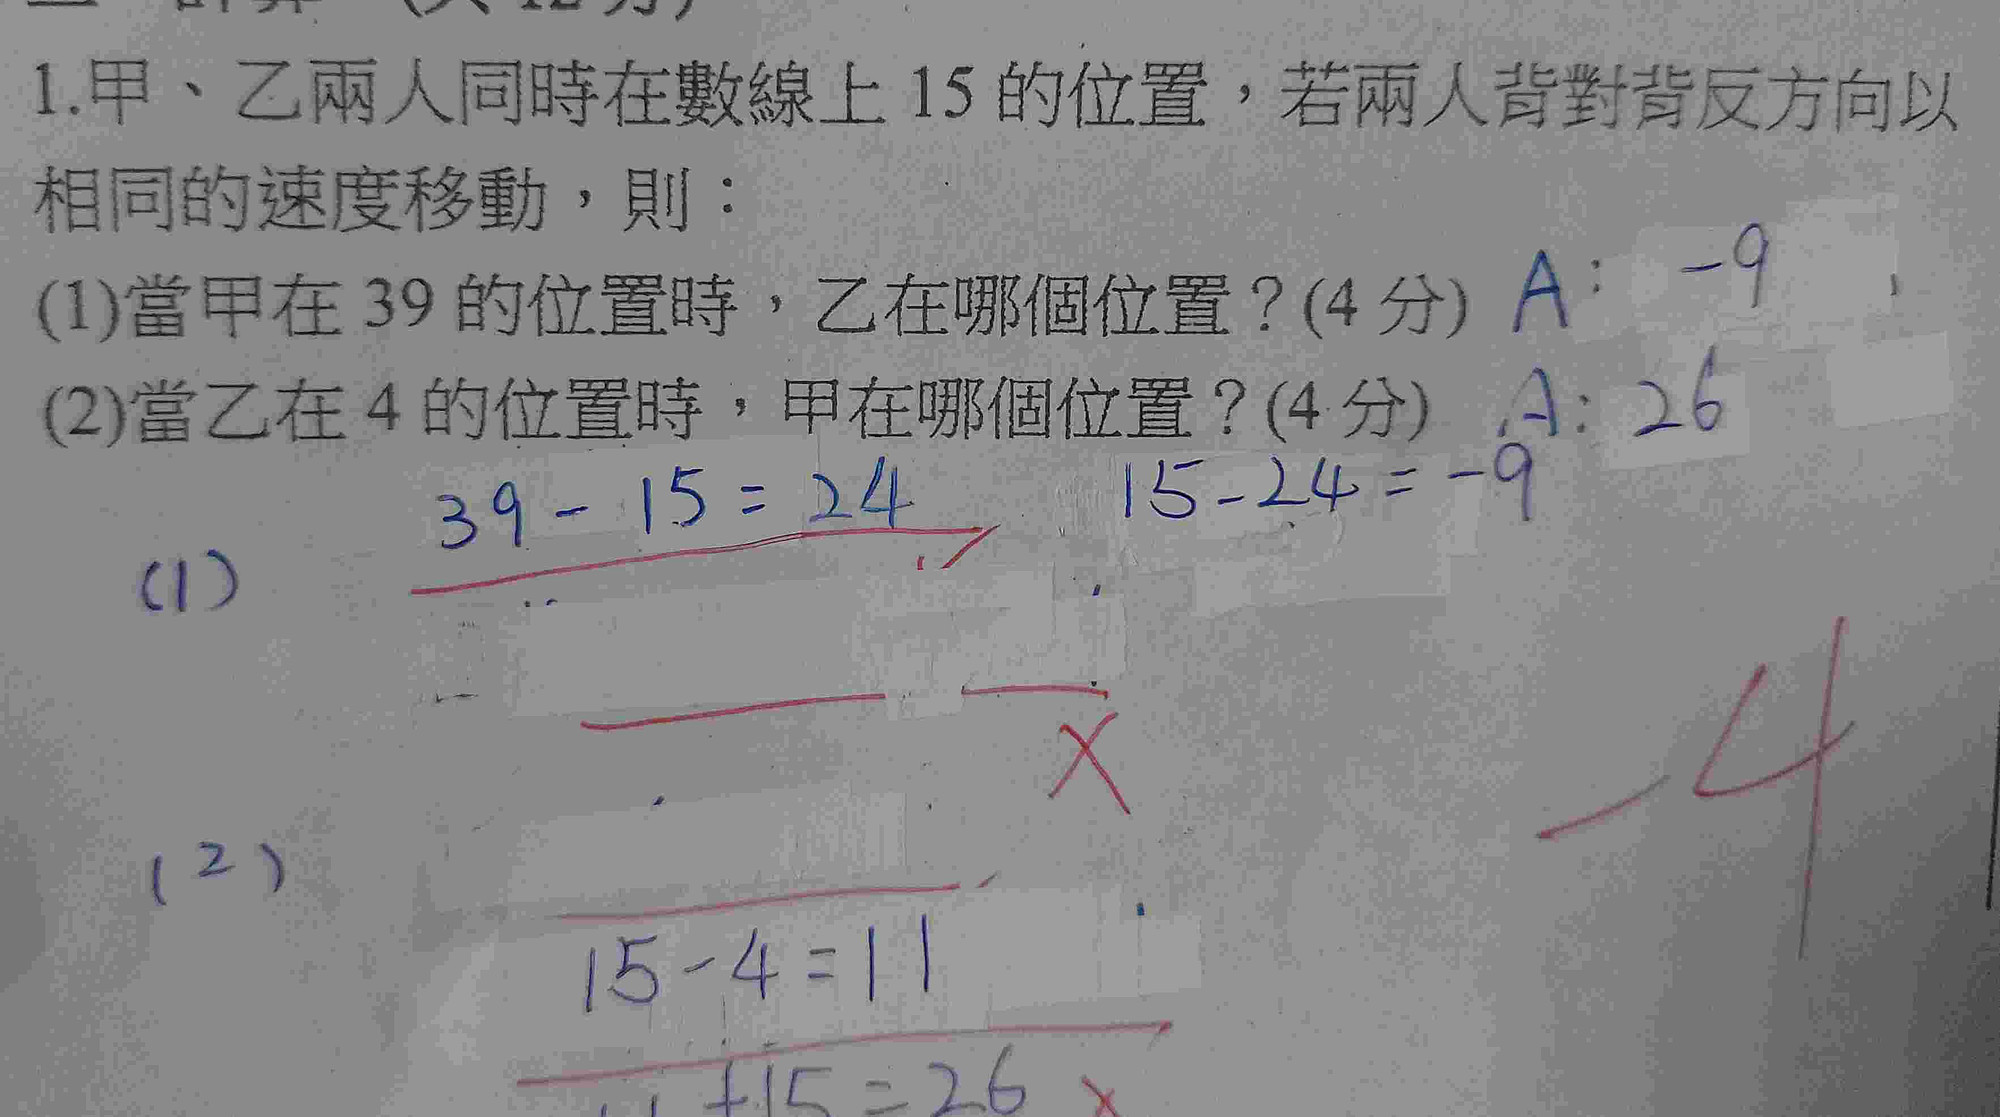 1.甲、乙兩人同時在數線上 15 的位置，若兩人背對背反方向以
相同的速度移動，則：
(1)當甲在 39 的位置時，乙在哪個位置？(4 分) A: -9
(2)當乙在 4 的位置時，甲在哪個位置？(4 分) A: 26
39 - 15 = 24 15 - 24 = -9
(1)
-4
(2)
15 - 4 = 11
+15 = 26